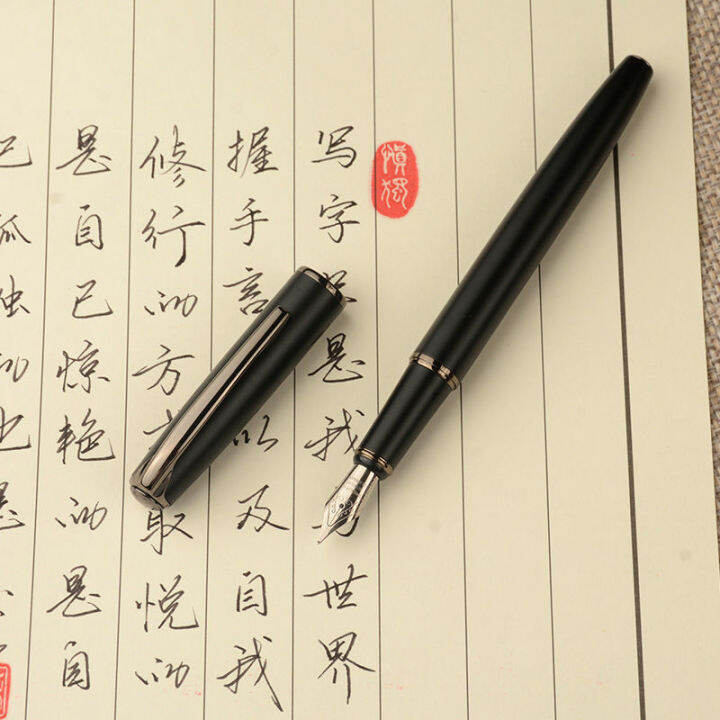 慎独
写字是我世界
握手言以及自我
修行的方取悦的
是自己惊艳的是自
己孤独的也是